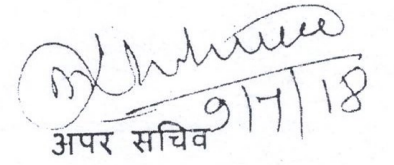 9/7/18
अपर सचिव